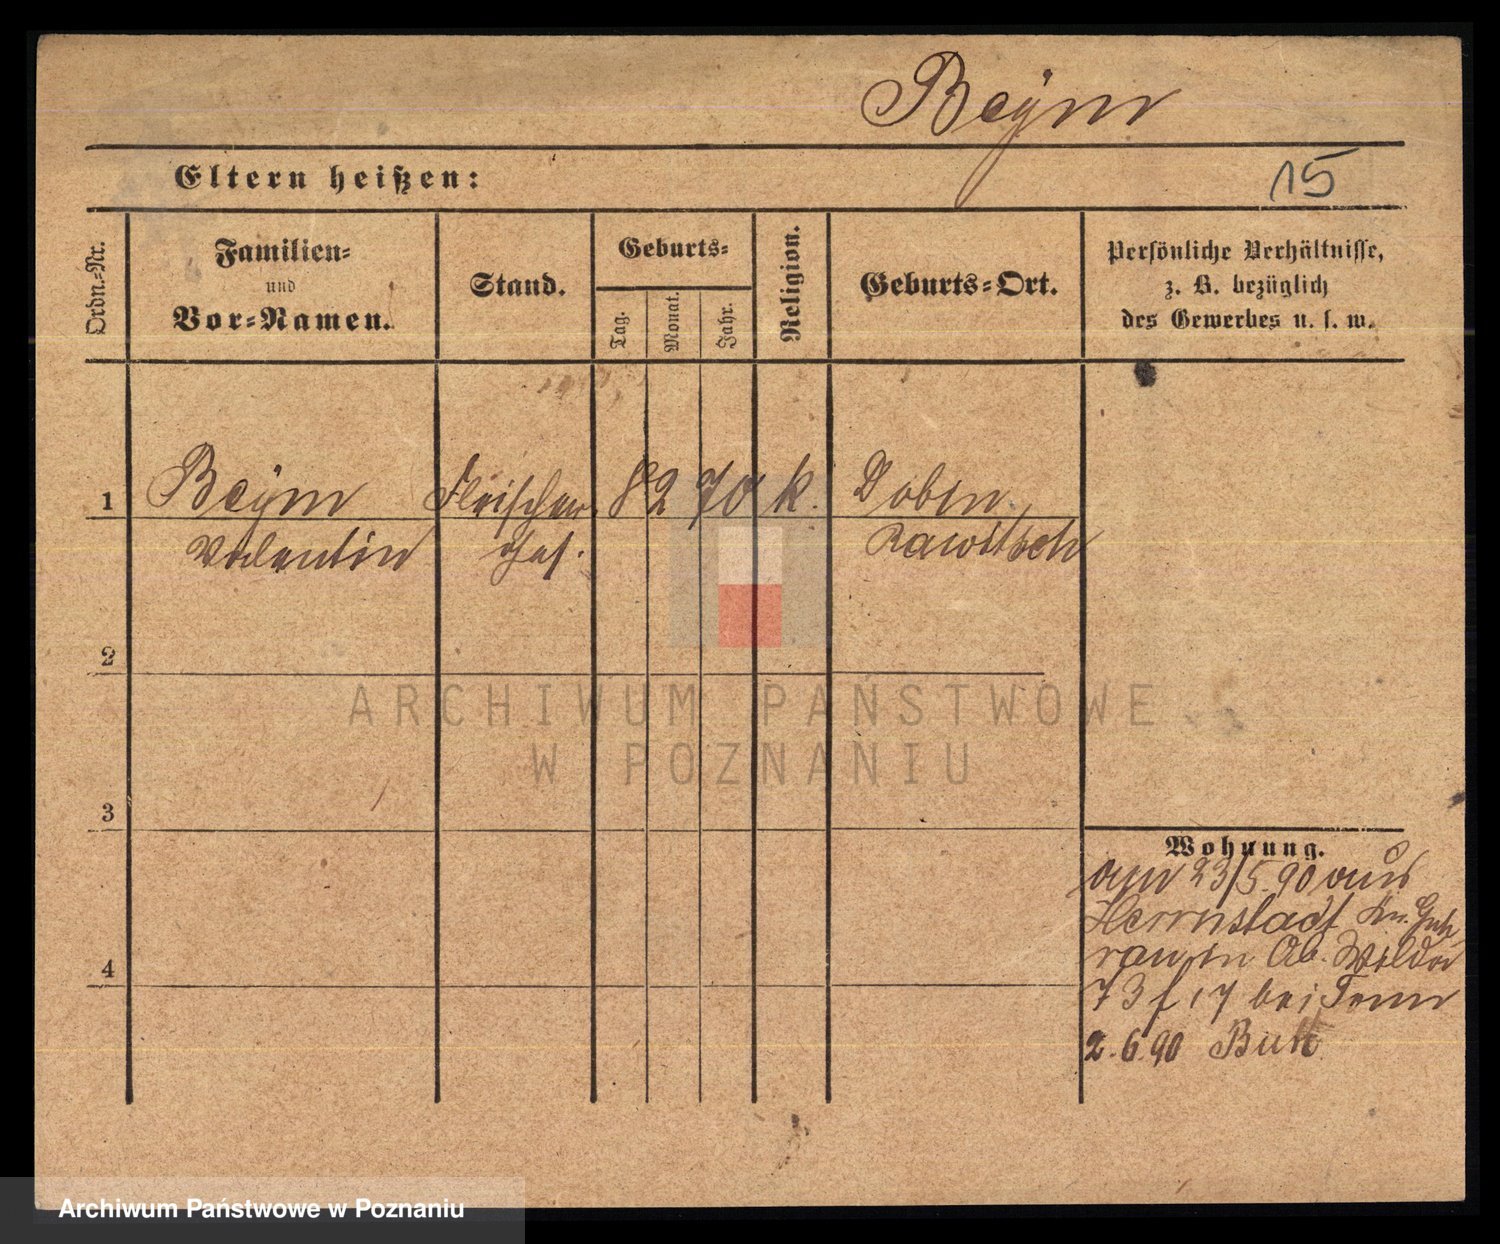 Beÿm
Eltern heißen:
15
Ordn.-Nr.
Familien-
und
Vor-Namen.
Stand.
Geburts-
Tag.
Monat.
Jahr.
Religion.
Geburts-Ort.
Persönliche Verhältnisse,
z. B. bezüglich
des Gewerbes u. s. w.
1 Beÿm Fleischer 8 2 70 k. Doben
Valentin Ges. Rawitsch
2
ARCHIWUM PAŃSTWOWE
W POZNANIU
3
4
Wohnung.
am 23/5.90 aus
Herrnstadt Kr. Guh
rau in Ob. Wilda
73 bei
2.6.90 Buk
Archiwum Państwowe w Poznaniu